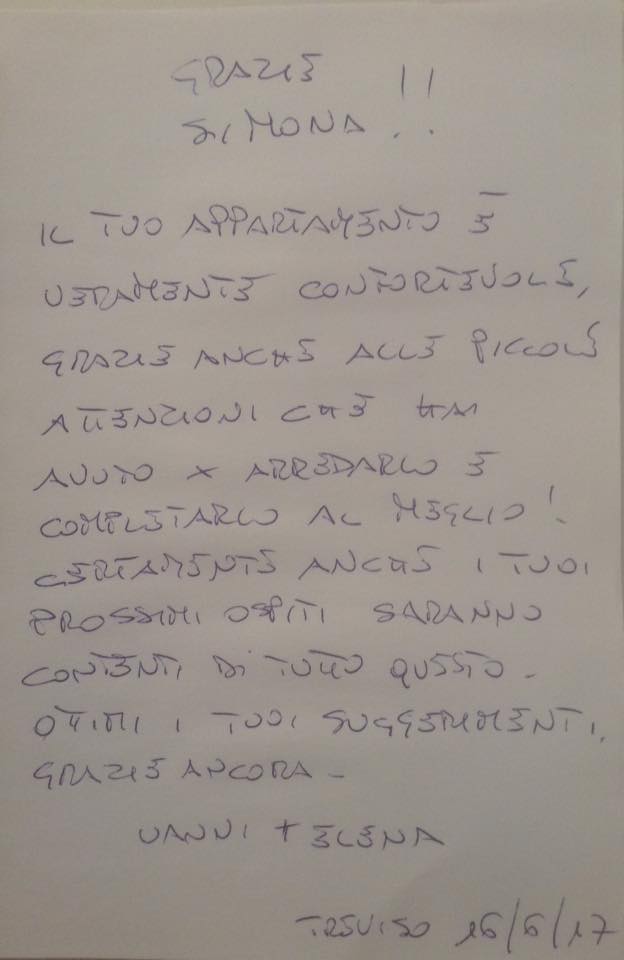 GRAZIE
SIMONA !!
IL TUO APPARTAMENTO È
VERAMENTE CONFORTEVOLE,
GRAZIE ANCHE ALLE PICCOLE
ATTENZIONI CHE HAI
AVUTO X ARREDARLO E
COMPLETARLO AL MEGLIO!
CERTAMENTE ANCHE I TUOI
PROSSIMI OSPITI SARANNO
CONTENTI DI TUTTO QUESTO.
OTTIMI I TUOI SUGGERIMENTI,
GRAZIE ANCORA -
VANNI + ELENA
TREVISO 16/6/17